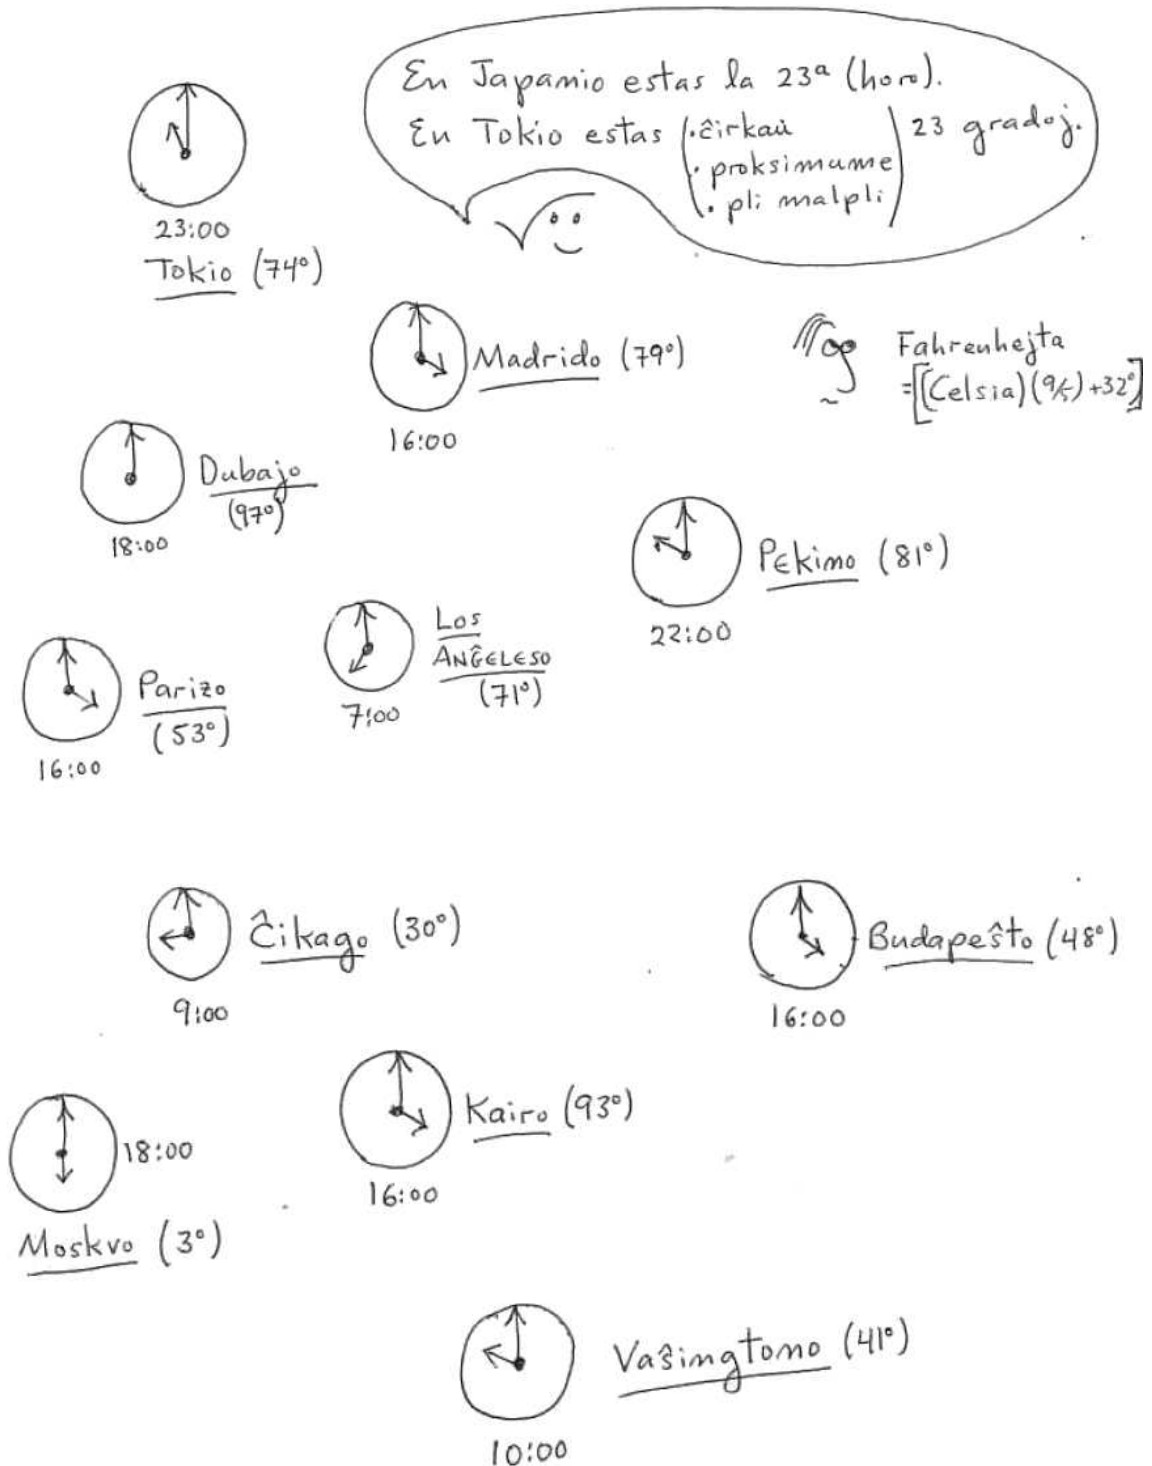 En Japanio estas la 23ª (horo).
En Tokio estas (·ĉirkaŭ
· proksimume
· pli malpli) 23 gradoj.
23:00
Tokio (74°)
Madrido (79°)
16:00
Fahrenhejta
=[(Celsia)(9/5)+32°]
Dubajo
(97°)
18:00
Pekino (81°)
22:00
Los
Anĝeleso
(71°)
7:00
Parizo
(53°)
16:00
Ĉikago (30°)
9:00
Budapeŝto (48°)
16:00
18:00
Moskvo (3°)
Kairo (93°)
16:00
Vaŝingtono (41°)
10:00